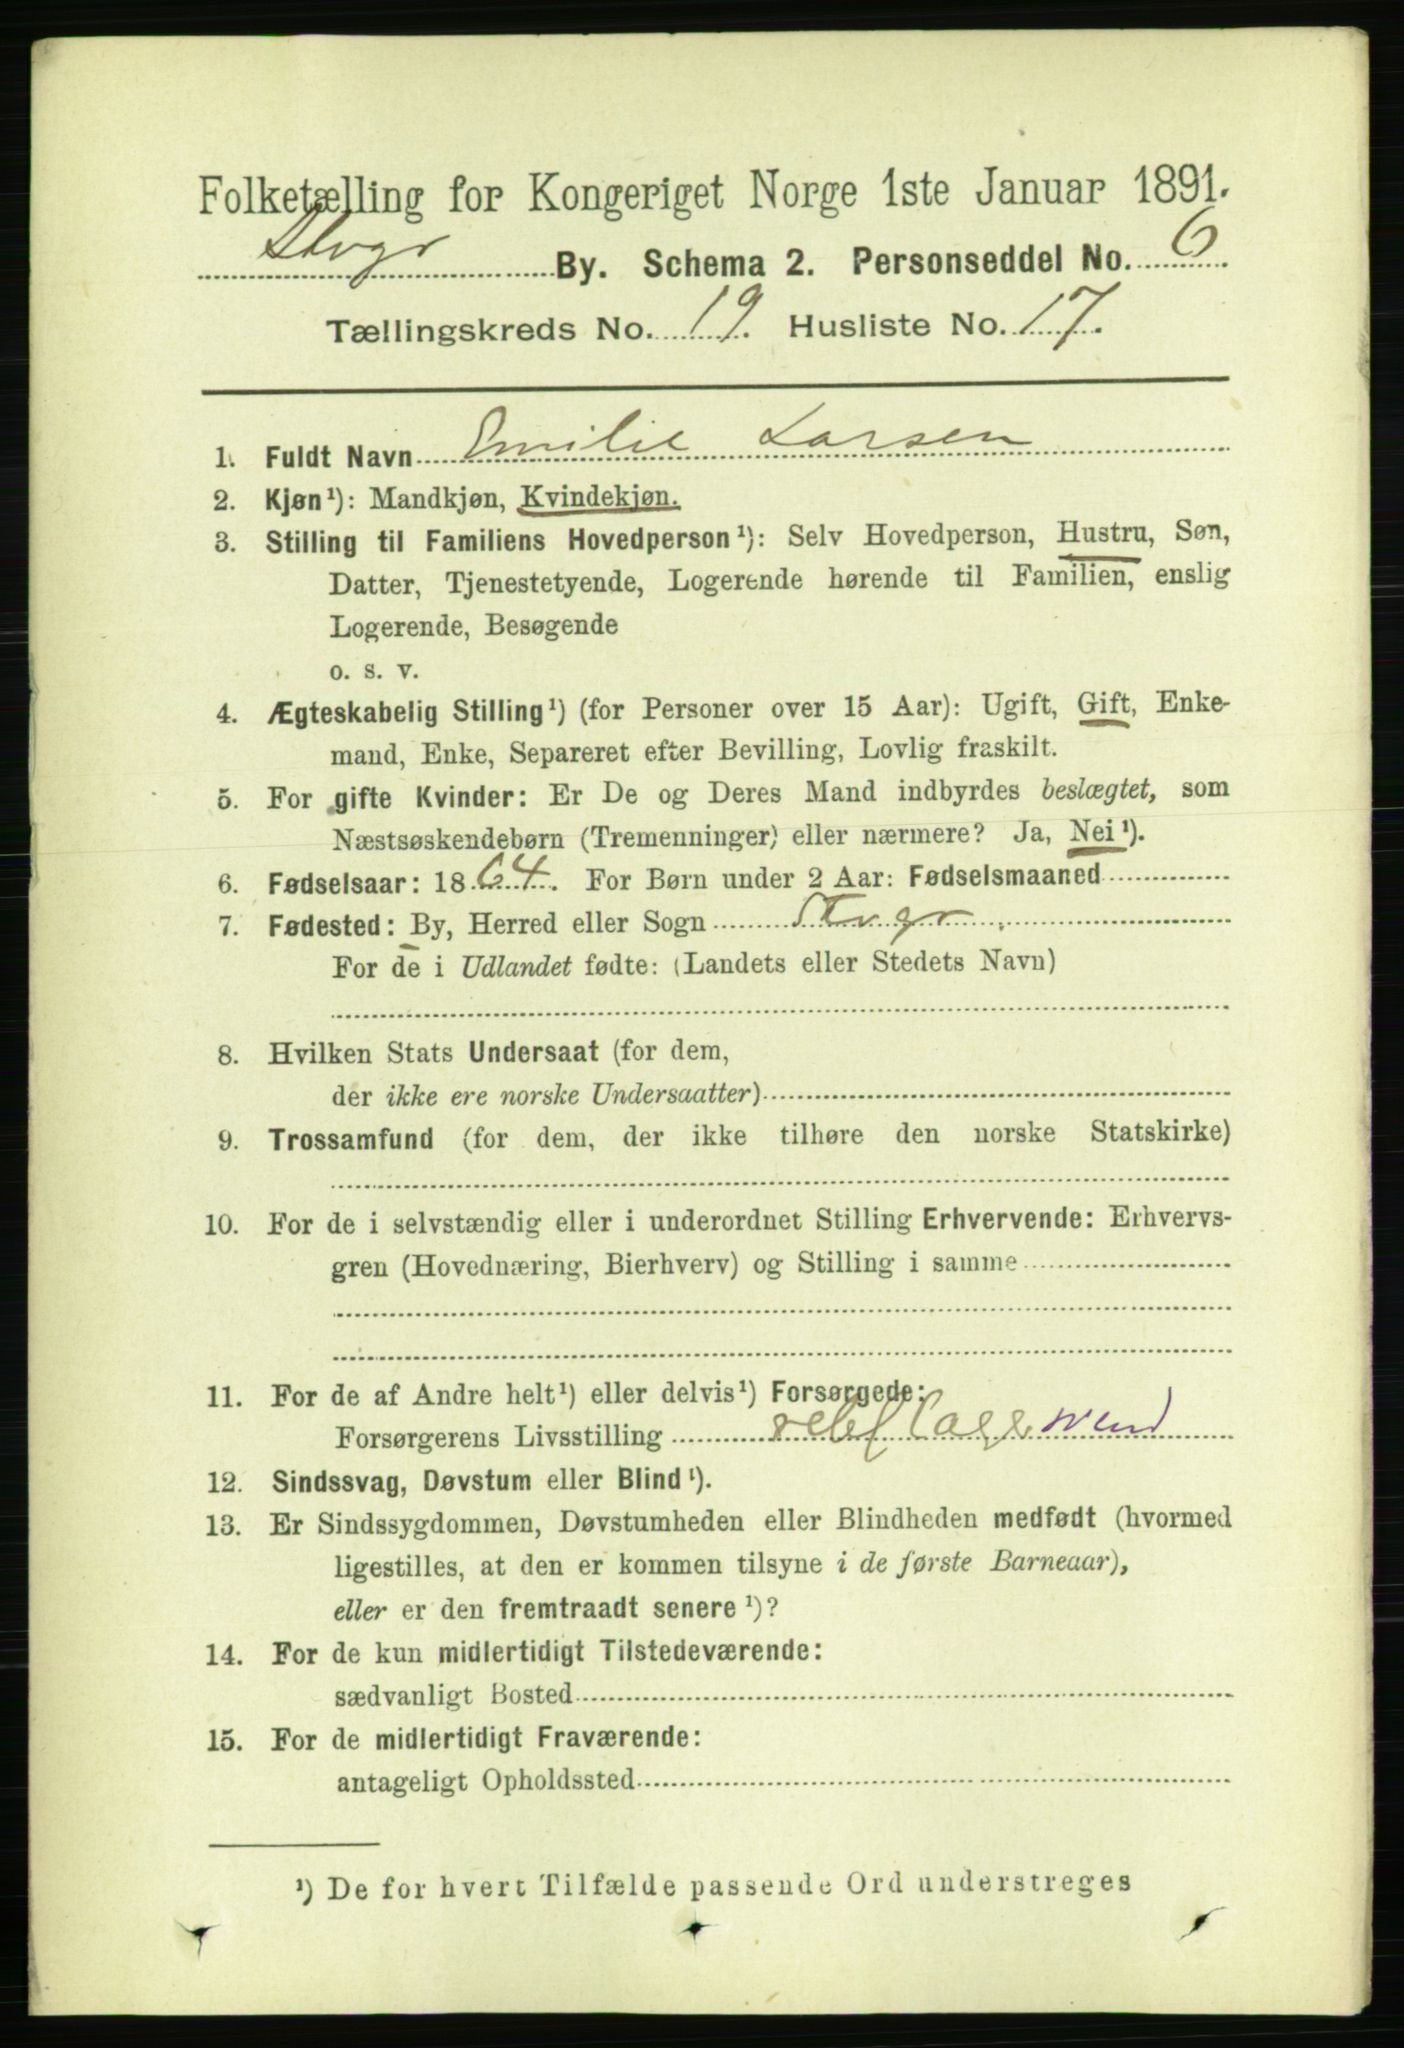 Folketælling for Kongeriget Norge 1ste Januar 1891.
Stvgr By. Schema 2. Personseddel No. 6
Tællingskreds No. 19. Husliste No. 17.
1. Fuldt Navn Emilie Larsen
2. Kjøn¹): Mandkjøn, Kvindekjøn.
3. Stilling til Familiens Hovedperson¹): Selv Hovedperson, Hustru, Søn,
Datter, Tjenestetyende, Logerende hørende til Familien, enslig
Logerende, Besøgende
o. s. v.
4. Ægteskabelig Stilling¹) (for Personer over 15 Aar): Ugift, Gift, Enke-
mand, Enke, Separeret efter Bevilling, Lovlig fraskilt.
5. For gifte Kvinder: Er De og Deres Mand indbyrdes beslægtet, som
Næstsøskendebørn (Tremenninger) eller nærmere? Ja, Nei¹).
6. Fødselsaar: 1864. For Børn under 2 Aar: Fødselsmaaned
7. Fødested: By, Herred eller Sogn Stvgr.
For de i Udlandet fødte: (Landets eller Stedets Navn)
8. Hvilken Stats Undersaat (for dem,
der ikke ere norske Undersaatter)
9. Trossamfund (for dem, der ikke tilhøre den norske Statskirke)
10. For de i selvstændig eller i underordnet Stilling Erhvervende: Erhvervs-
gren (Hovednæring, Bierhverv) og Stilling i samme
11. For de af Andre helt¹) eller delvis¹) Forsørgede:
Forsørgerens Livsstilling
12. Sindssvag, Døvstum eller Blind¹).
13. Er Sindssygdommen, Døvstumheden eller Blindheden medfødt (hvormed
ligestilles, at den er kommen tilsyne i de første Barneaar),
eller er den fremtraadt senere¹)?
14. For de kun midlertidigt Tilstedeværende:
sædvanligt Bosted
15. For de midlertidigt Fraværende:
antageligt Opholdssted
¹) De for hvert Tilfælde passende Ord understreges